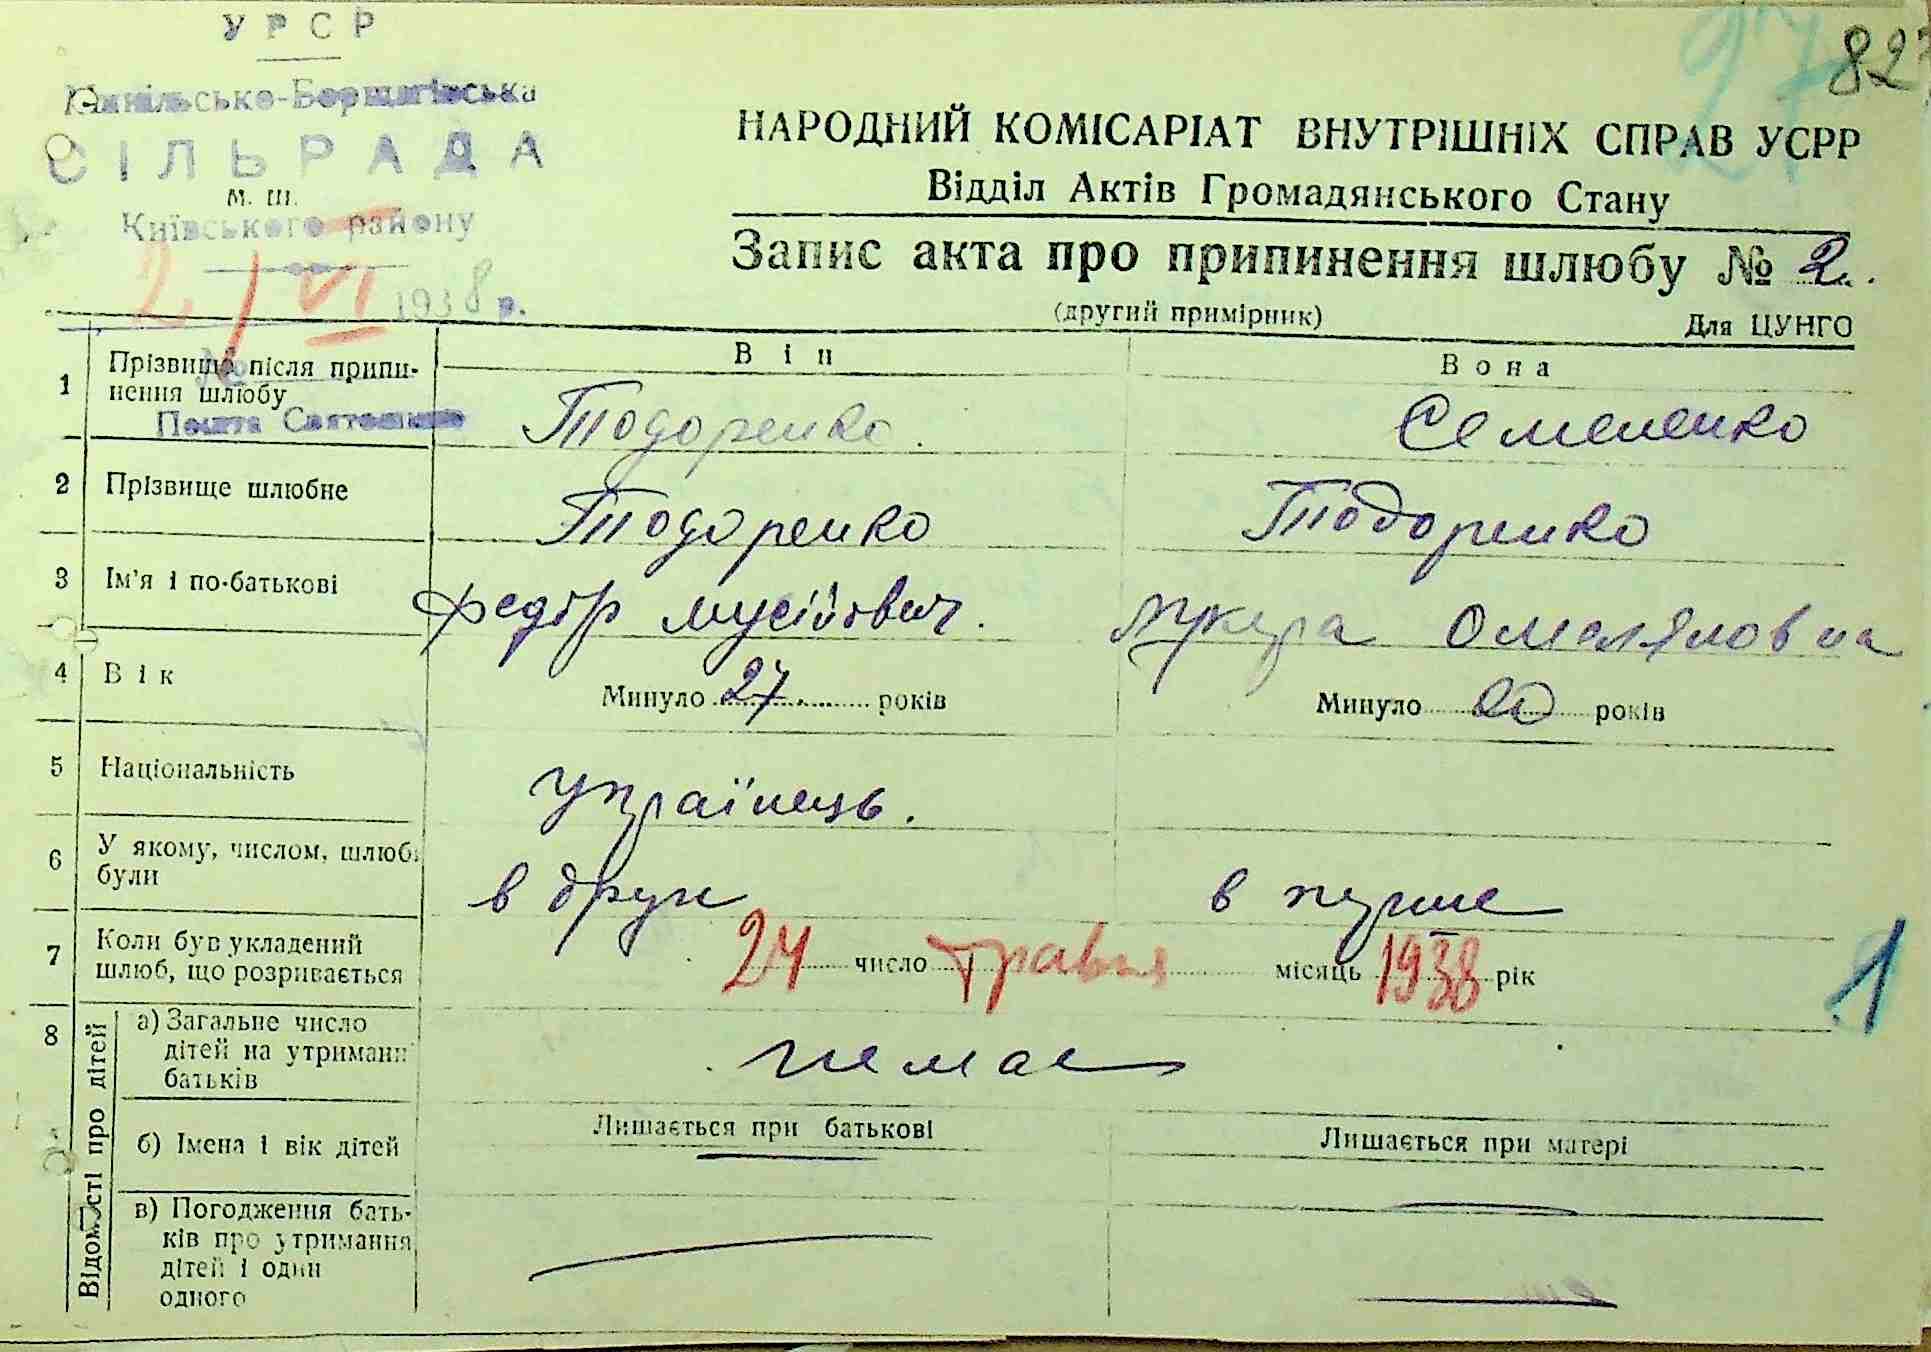 УРСР
Микільсько-Борщагівська
СІЛЬРАДА
М. Ш.
Київського району
2/VI 1938 р.
№
Пошта Святошине
27
827
НАРОДНИЙ КОМІСАРІАТ ВНУТРІШНІХ СПРАВ УСРР
Відділ Актів Громадянського Стану
Запис акта про припинення шлюбу № 2
(другий примірник)
Для ЦУНГО
Він Вона
1 Прізвище після припи-
нення шлюбу
Тодоренко. Семененко
2 Прізвище шлюбне Тодоренко Тодоренко
3 Ім'я і по-батькові Федір Мусійович. Омеляновна
4 Вік Минуло 27 років Минуло 20 років
5 Національність українець.
6 У якому, числом, шлюбі
були
в друг в перше
7 Коли був укладений
шлюб, що розривається
24 число травня місяць 1938 рік
1
8 Відомості про дітей
а) Загальне число
дітей на утриманні
батьків
немає
б) Імена і вік дітей Лишається при батькові Лишається при матері
в) Погодження бать-
ків про утримання
дітей і один
одного